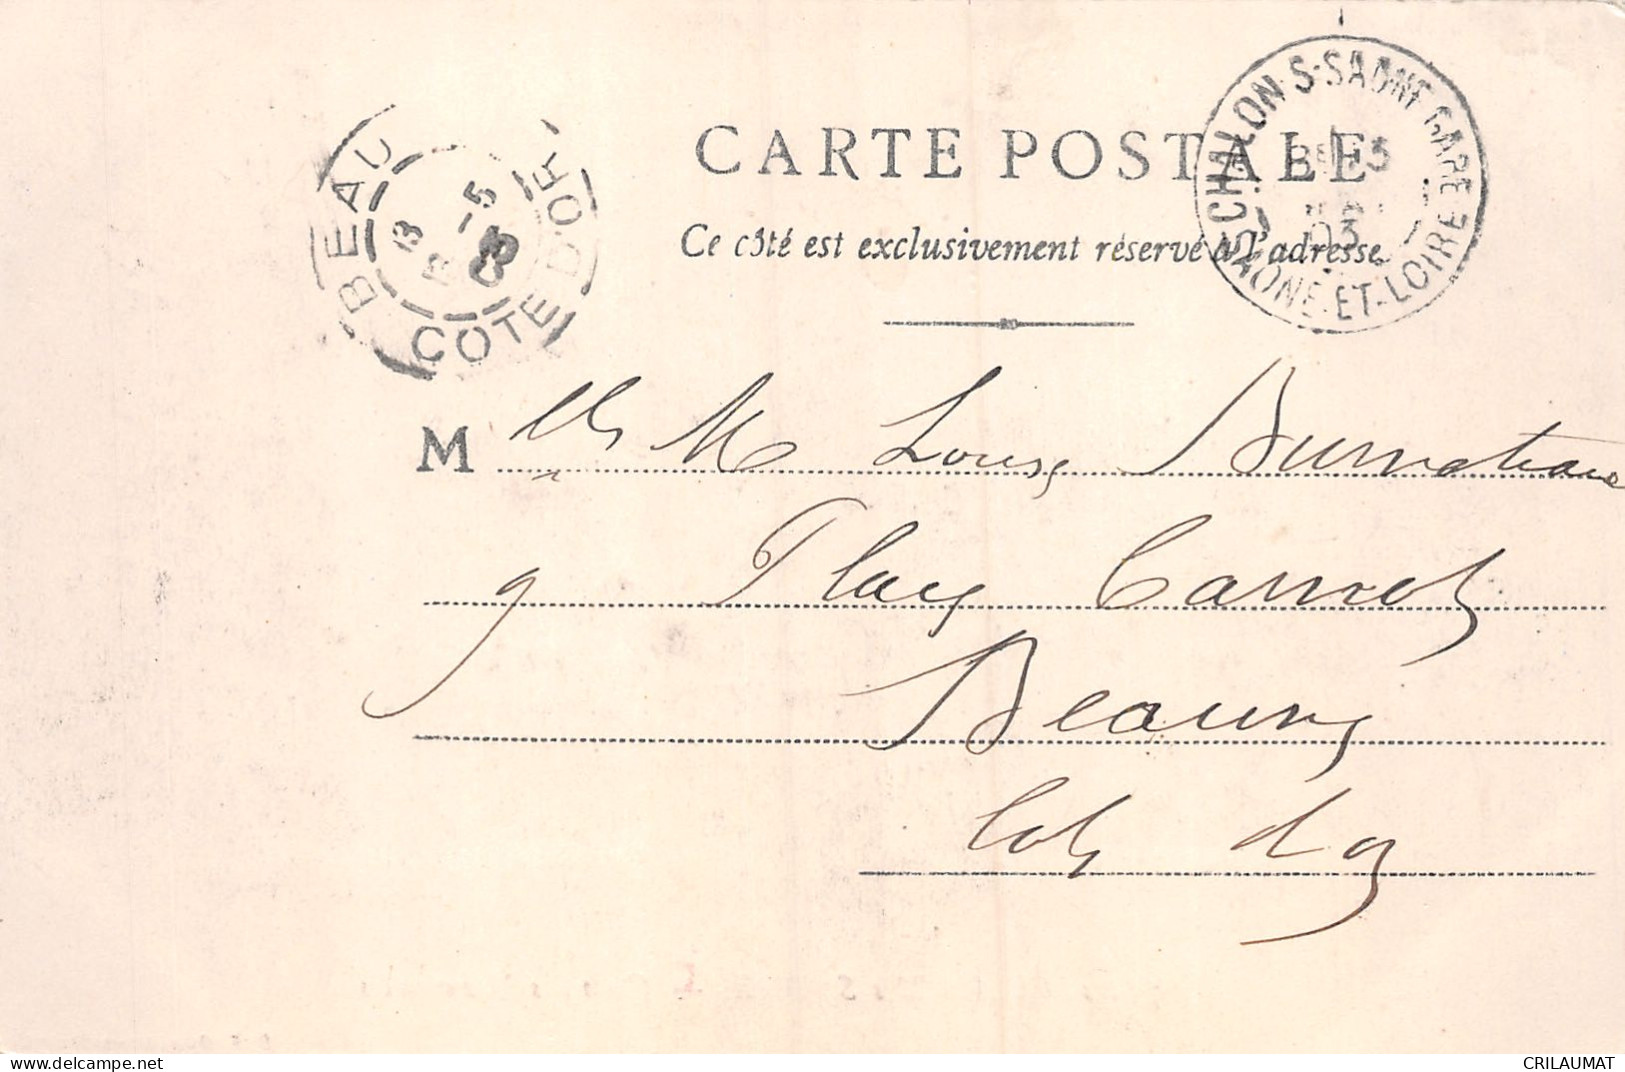 CARTE POSTALE
Ce côté est exclusivement réservé à l'adresse
CHALON-S-SAONE GARE
03
SAONE-ET-LOIRE
BEAU
8 -5
03
COTE D'OR
M lle M Louise
9 Place Carnot
Beaune
Cote d or
CRILAUMAT